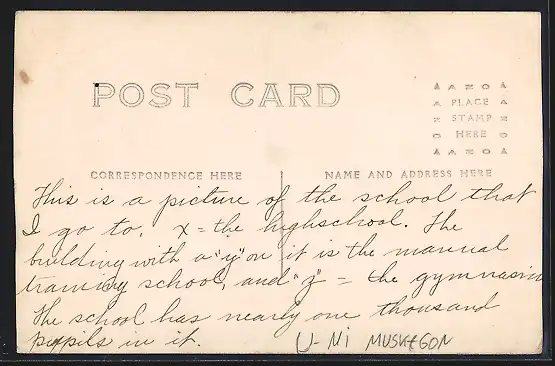 POST CARD
AZO
PLACE
STAMP
HERE
AZO
CORRESPONDENCE HERE
NAME AND ADDRESS HERE
This is a picture of the school that
I go to. x = the highschool. The
building with a "y" on it is the manual
training school, and "z" = the gymnasium
The school has nearly one thousand
pupils in it.
U-Mi MUSKEGON